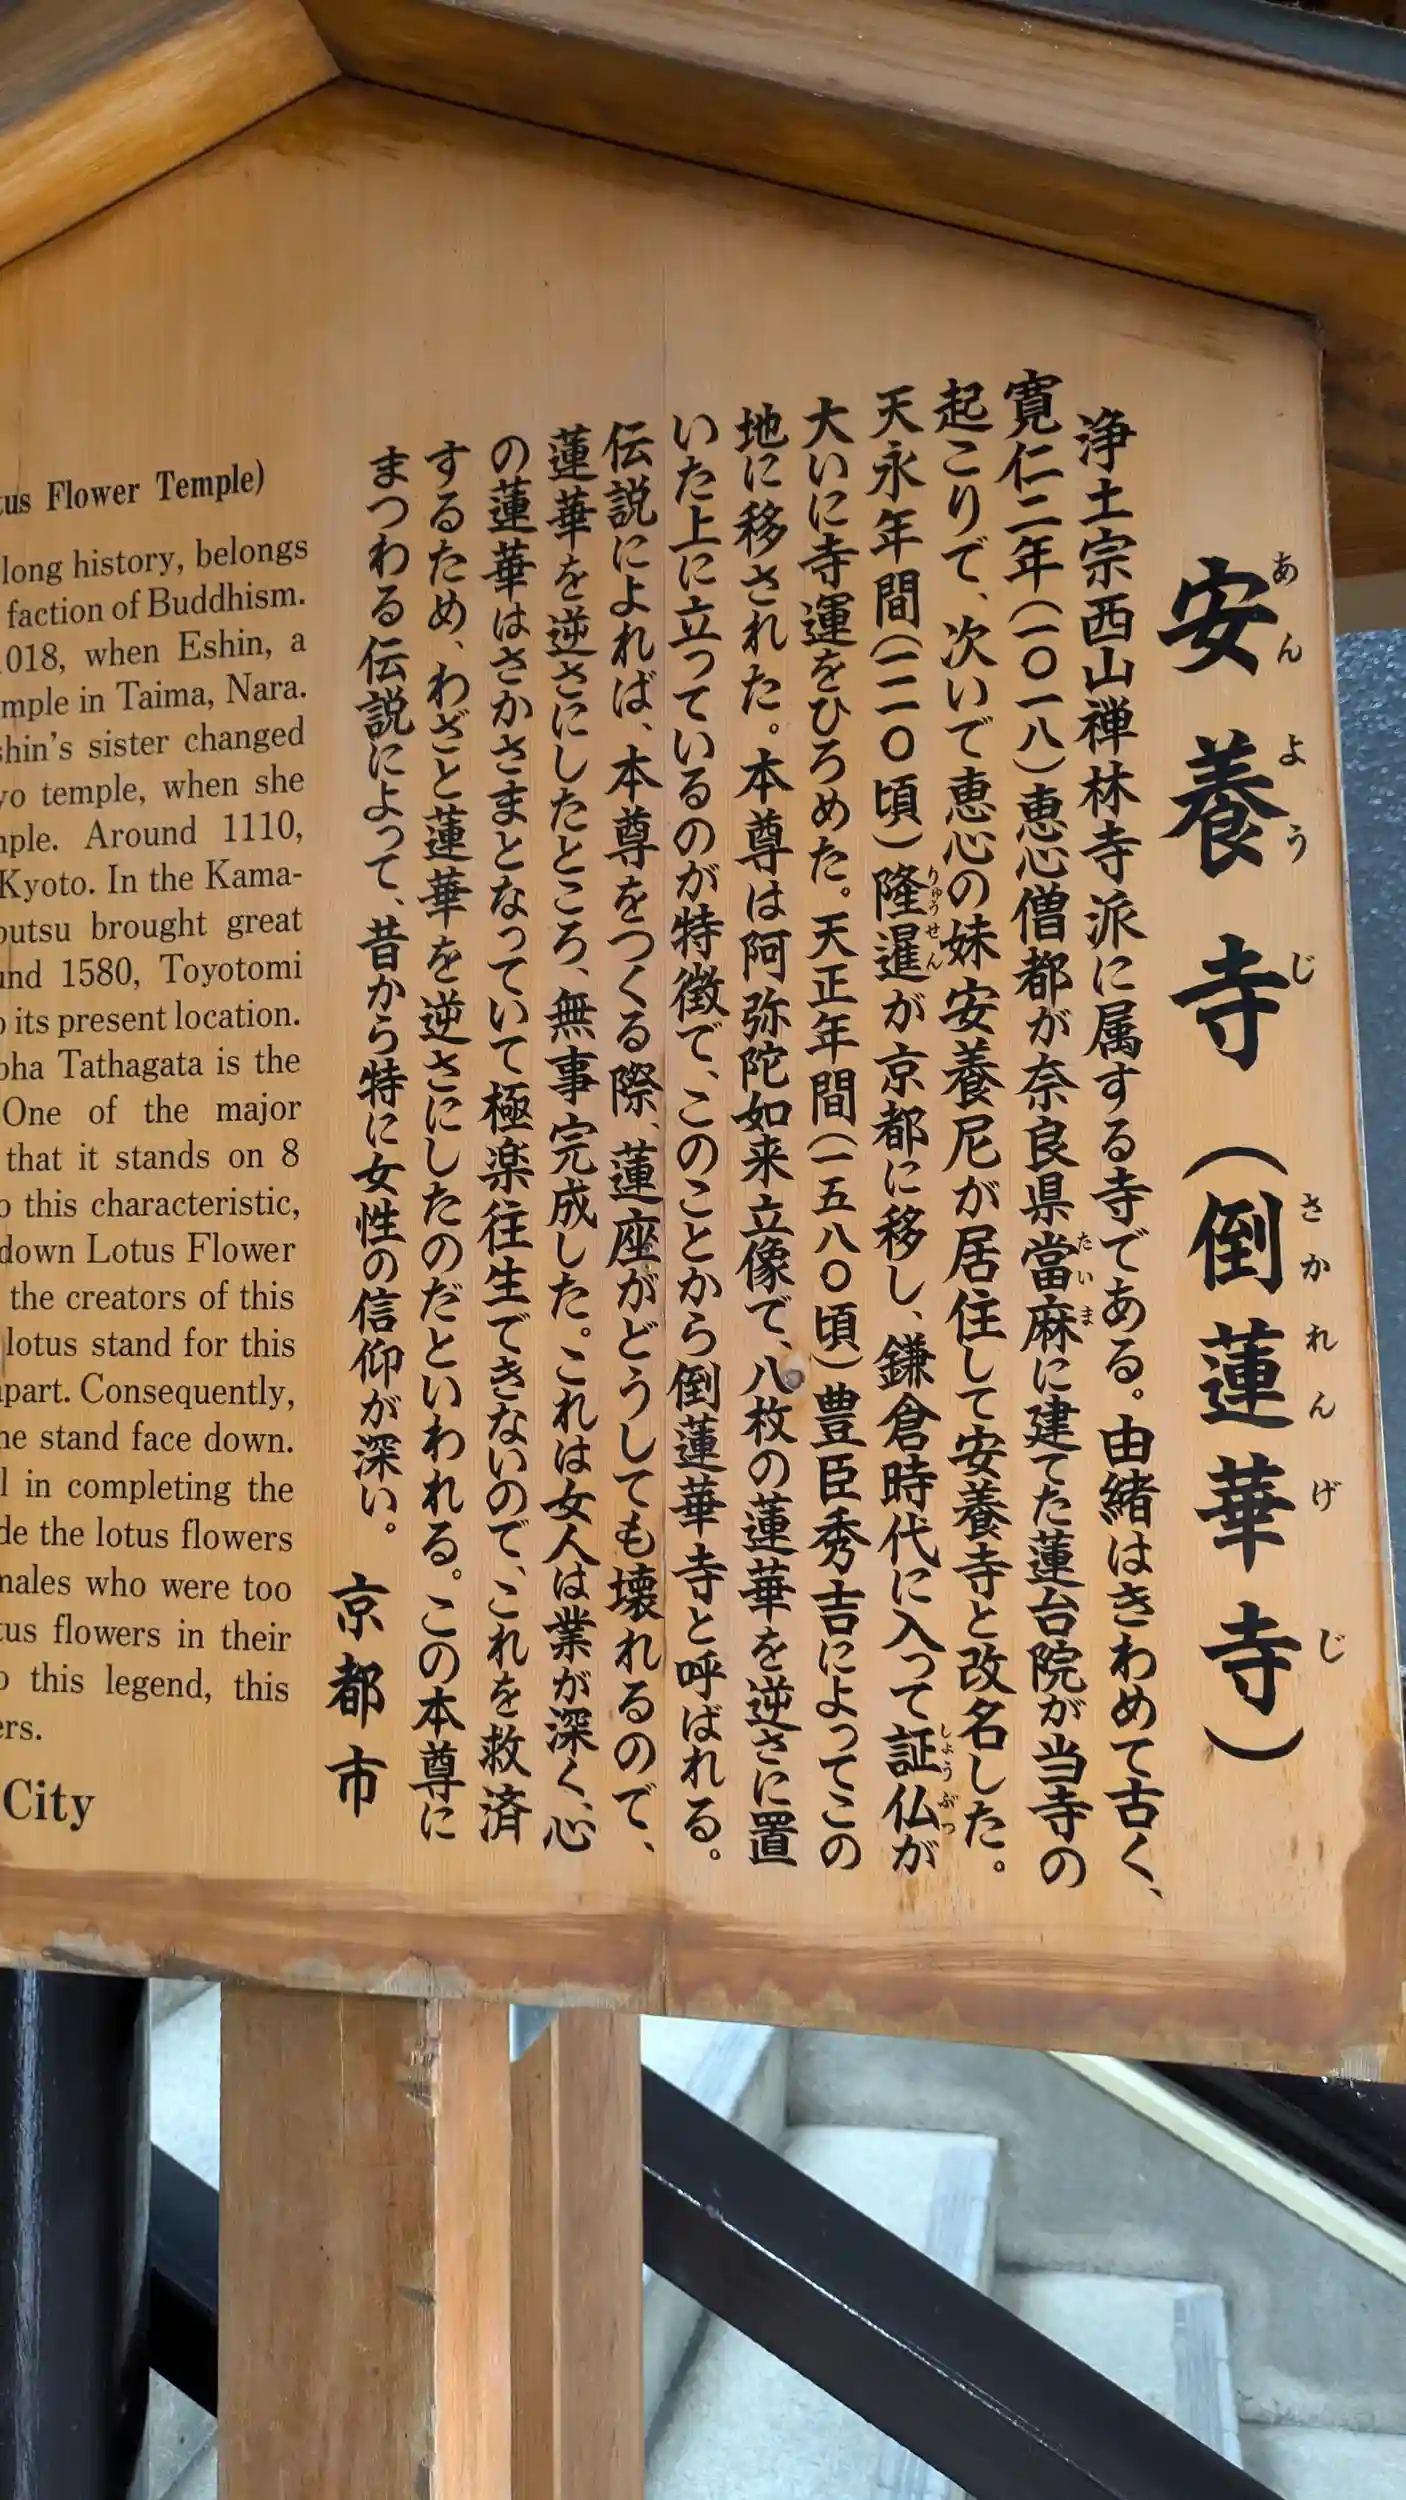 安養寺(倒蓮華寺)
あんようじ
さかれんげじ
浄土宗西山禅林寺派に属する寺である。由緒はきわめて古く、
寛仁二年(一〇一八)恵心僧都が奈良県當麻に建てた蓮台院が当寺の
たいま
起こりで、次いで恵心の妹安養尼が居住して安養寺と改名した。
天永年間(一一一〇頃)隆暹が京都に移し、鎌倉時代に入って証仏が
りゅうせん
しょうぶつ
大いに寺運をひろめた。天正年間(一五八〇頃)豊臣秀吉によってこの
地に移された。本尊は阿弥陀如来立像で、八枚の蓮華を逆さに置
いた上に立っているのが特徴で、このことから倒蓮華寺と呼ばれる。
伝説によれば、本尊をつくる際、蓮座がどうしても壊れるので、
蓮華を逆さにしたところ、無事完成した。これは女人は業が深く、心
の蓮華はさかさまとなっていて極楽往生できないので、これを救済
するため、わざと蓮華を逆さにしたのだといわれる。この本尊に
まつわる伝説によって、昔から特に女性の信仰が深い。
京都市
tus Flower Temple)
long history, belongs
faction of Buddhism.
1018, when Eshin, a
mple in Taima, Nara.
shin's sister changed
yo temple, when she
mple. Around 1110,
Kyoto. In the Kama-
butsu brought great
und 1580, Toyotomi
o its present location.
bha Tathagata is the
One of the major
that it stands on 8
o this characteristic,
down Lotus Flower
the creators of this
lotus stand for this
apart. Consequently,
he stand face down.
l in completing the
de the lotus flowers
males who were too
tus flowers in their
o this legend, this
ers.
City